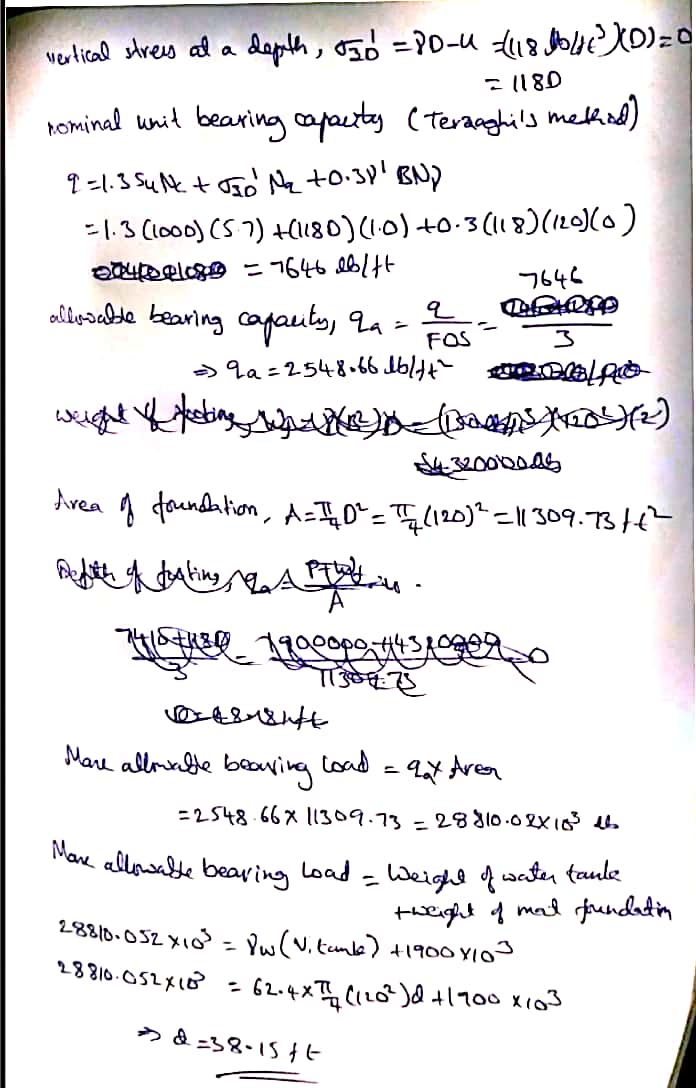 vertical stress at a depth, σzD' = γD-u =(118 lb/ft³)(D)=0
= 118D
nominal unit bearing capacity (Terzaghi's method)
q =1.3 Su Nc + σzD' Nq +0.3γ' BNγ
=1.3 (1000) (5.7) +(118D) (1.0) +0.3 (118) (120)(0)
= 7646 lb/ft
allowable bearing capacity, qa = q/FOS = 7646/3
⇒ qa = 2548.66 lb/ft²
Area of foundation, A=π/4 D² = π/4 (120)² = 11309.73 ft²
A
Max allowable bearing load = qa x Area
=2548.66 x 11309.73 = 28810.02x10³ lb
Max allowable bearing load = Weight of water tank
+weight of mat foundation
28810.052 x10³ = γw (V. tank) +1900 x10³
28810.052x10³ = 62.4 x π/4 (120²)d +1900 x10³
⇒ d =38.15 ft